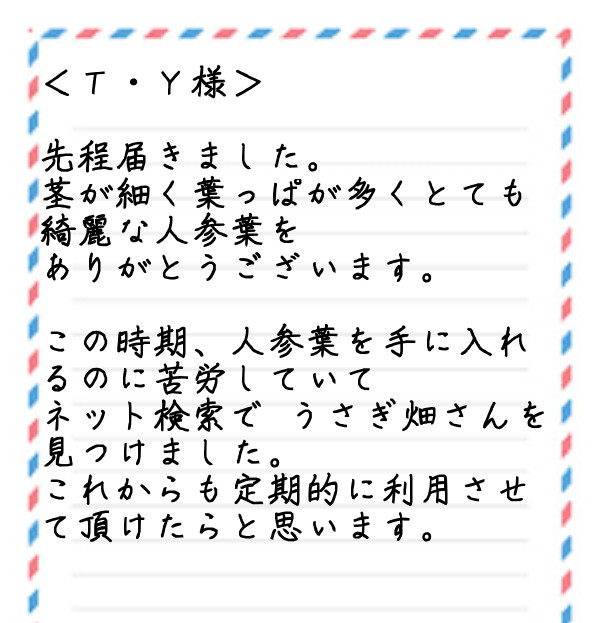 ＜Ｔ・Ｙ様＞
先程届きました。
茎が細く葉っぱが多くとても
綺麗な人参葉を
ありがとうございます。
この時期、人参葉を手に入れ
るのに苦労していて
ネット検索で うさぎ畑さんを
見つけました。
これからも定期的に利用させ
て頂けたらと思います。